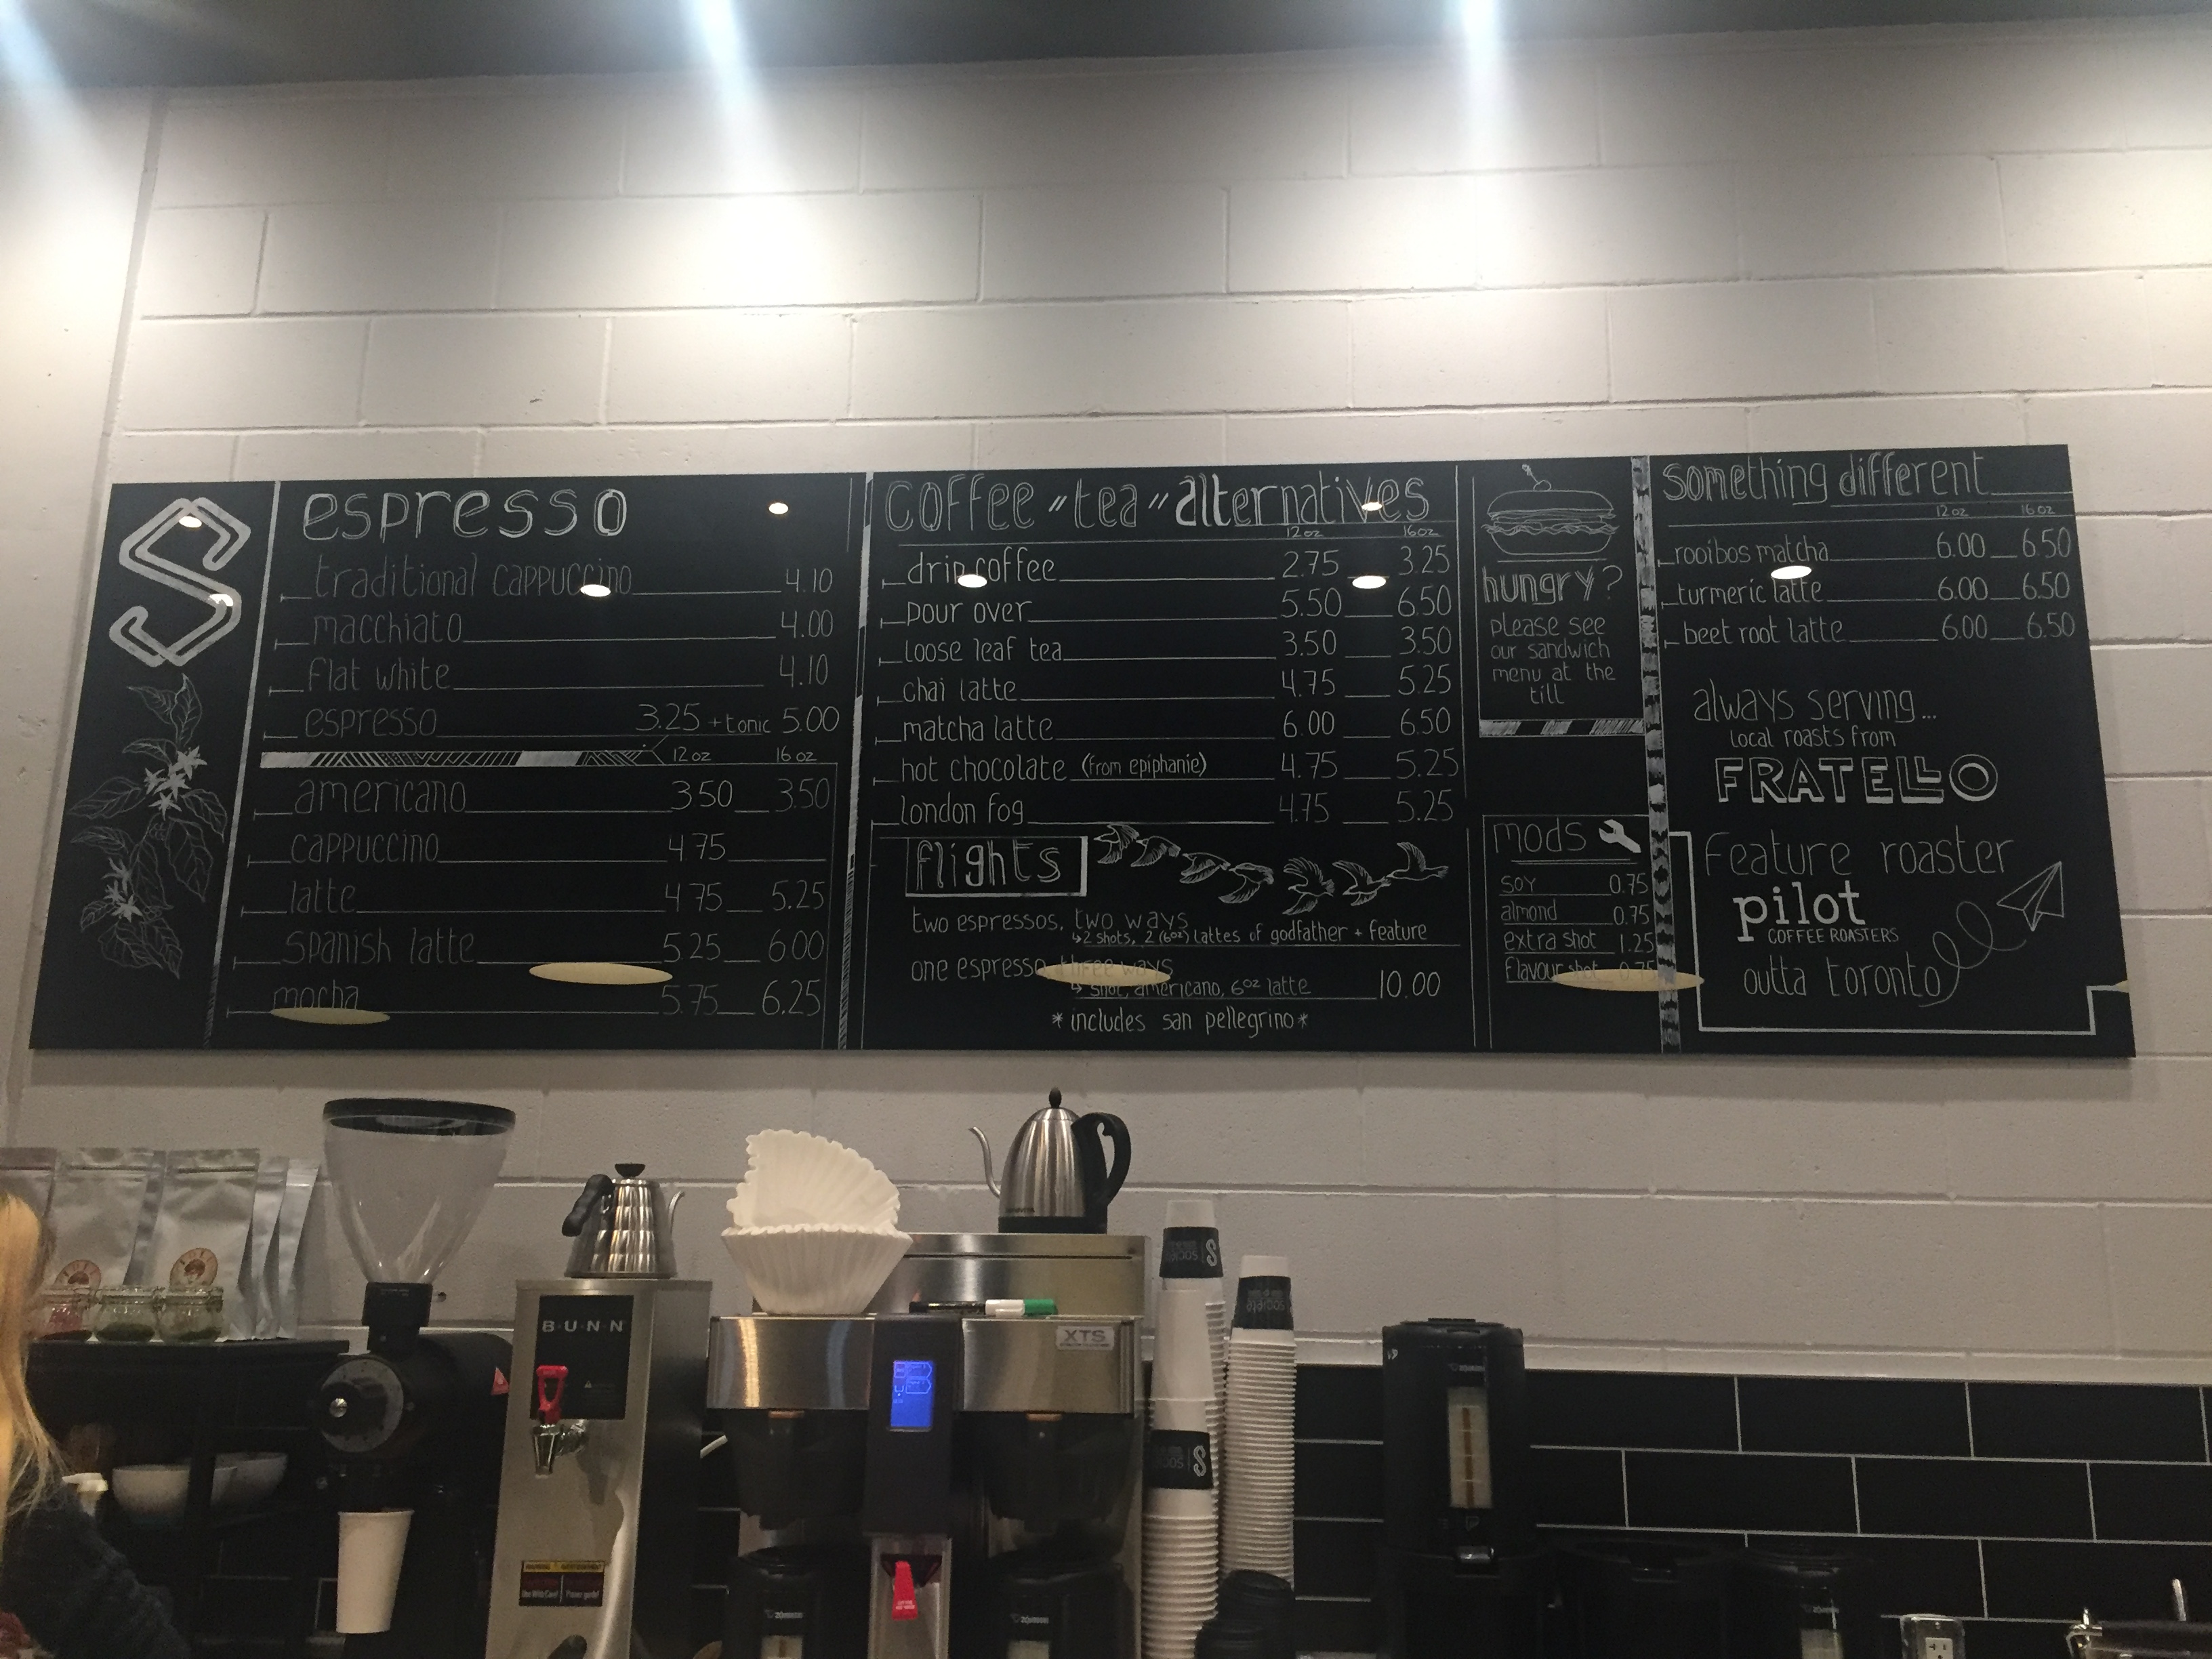 S
espresso
traditional cappuccino 4.10
macchiato 4.00
flat white 4.10
espresso 3.25 +tonic 5.00
12 oz 16 oz
americano 3.50 3.50
cappuccino 4.75
latte 4.75 5.25
spanish latte 5.25 6.00
mocha 5.75 6.25
coffee "tea" alternatives
12 oz 16 oz
drip coffee 2.75 3.25
pour over 5.50 6.50
loose leaf tea 3.50 3.50
chai latte 4.75 5.25
matcha latte 6.00 6.50
hot chocolate (from epiphanie) 4.75 5.25
london fog 4.75 5.25
flights
two espressos, two ways
↳2 shots, 2 (6oz) lattes of godfather + feature
one espresso three ways
↳ shot, americano, 6oz latte 10.00
*includes san pellegrino*
hungry?
please see
our sandwich
menu at the
till
mods
soy 0.75
almond 0.75
extra shot 1.25
flavour shot 0.75
something different
12 oz 16 oz
rooibos matcha 6.00 6.50
turmeric latte 6.00 6.50
beet root latte 6.00 6.50
always serving...
local roasts from
FRATELLO
feature roaster
pilot
COFFEE ROASTERS
outta toronto
BUNN
XTS
S
S
ZOJIRUSHI
ZOJIRUSHI
ZOJIRUSHI